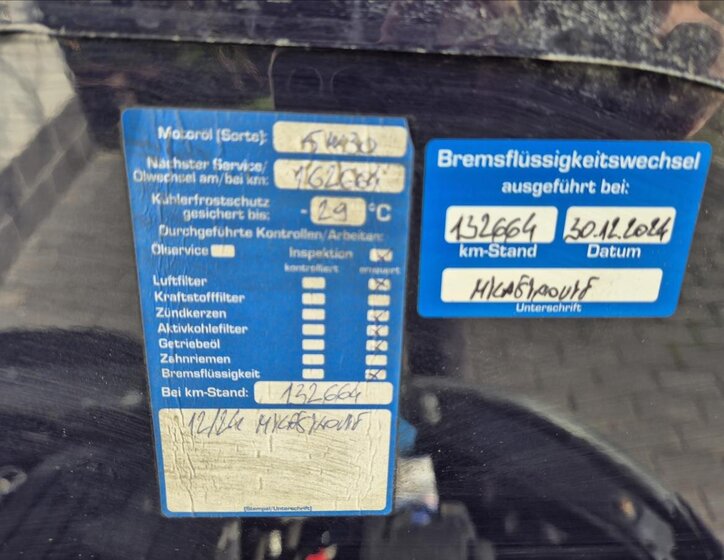 Motoröl (Sorte): 5W30
Nächster Service/
Ölwechsel am/bei km: 162664
Kühlerfrostschutz
gesichert bis: - 29 °C
Durchgeführte Kontrollen/Arbeiten:
Ölservice Inspektion
kontrolliert erneuert
Luftfilter
Kraftstofffilter
Zündkerzen
Aktivkohlefilter
Getriebeöl
Zahnriemen
Bremsflüssigkeit
Bei km-Stand: 132664
12/24
(Stempel/Unterschrift)
Bremsflüssigkeitswechsel
ausgeführt bei:
132664 30.12.2024
km-Stand Datum
Unterschrift